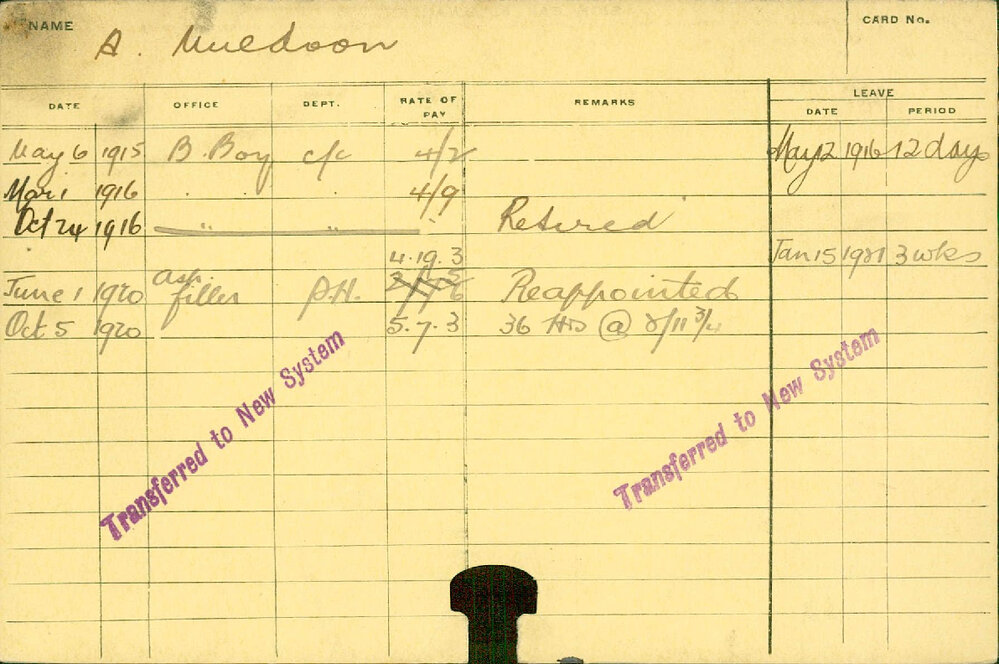 NAME A. Muldoon CARD No.
LEAVE
DATE OFFICE DEPT. RATE OF PAY REMARKS DATE PERIOD
May 6 1915 B. Boy c/c 4/2 May 12 1916 12 days
Mar 1 1916 " " 4/9
Oct 24 1916 " " Retired
4.19.3 Jan 15 1921 3 wks
June 1 1920 Asp. filler P.H. Reappointed
Oct 5 1920 5.7.3 36 Hrs @ 2/11 3/4
Transferred to New System
Transferred to New System